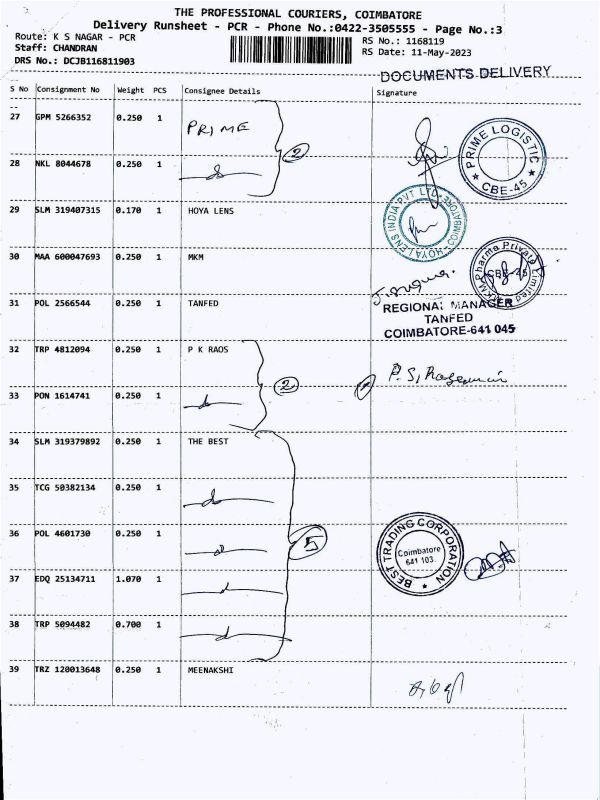 THE PROFESSIONAL COURIERS, COIMBATORE
Delivery Runsheet - PCR - Phone No.:0422-3505555 - Page No.:3
Route: K S NAGAR - PCR
RS No.: 1168119
Staff: CHANDRAN
RS Date: 11-May-2023
DRS No.: DCJB116811903
DOCUMENTS DELIVERY
S No Consignment No Weight PCS Consignee Details Signature
27 GPM 5266352 0.250 1 PRIME
PRIME LOGISTIC
★ CBE-45 ★
28 NKL 8044678 0.250 1 do
2
29 SLM 319407315 0.170 1 HOYA LENS
HOYA LENS INDIA PVT LTD COIMBATORE
30 MAA 600047693 0.250 1 MKM
MKM Pharma Private Limited
CBE-45
31 POL 2566544 0.250 1 TANFED
REGIONAL MANAGER
TANFED
COIMBATORE-641 045
32 TRP 4812094 0.250 1 P K RAOS
2
33 PON 1614741 0.250 1 do
34 SLM 319379892 0.250 1 THE BEST
35 TCG 50382134 0.250 1 do
36 POL 4601730 0.250 1 do
5
BEST TRADING CORPORATION
Coimbatore
641 103.
37 EDQ 25134711 1.070 1 d
38 TRP 5094482 0.700 1 d
39 TRZ 120013648 0.250 1 MEENAKSHI